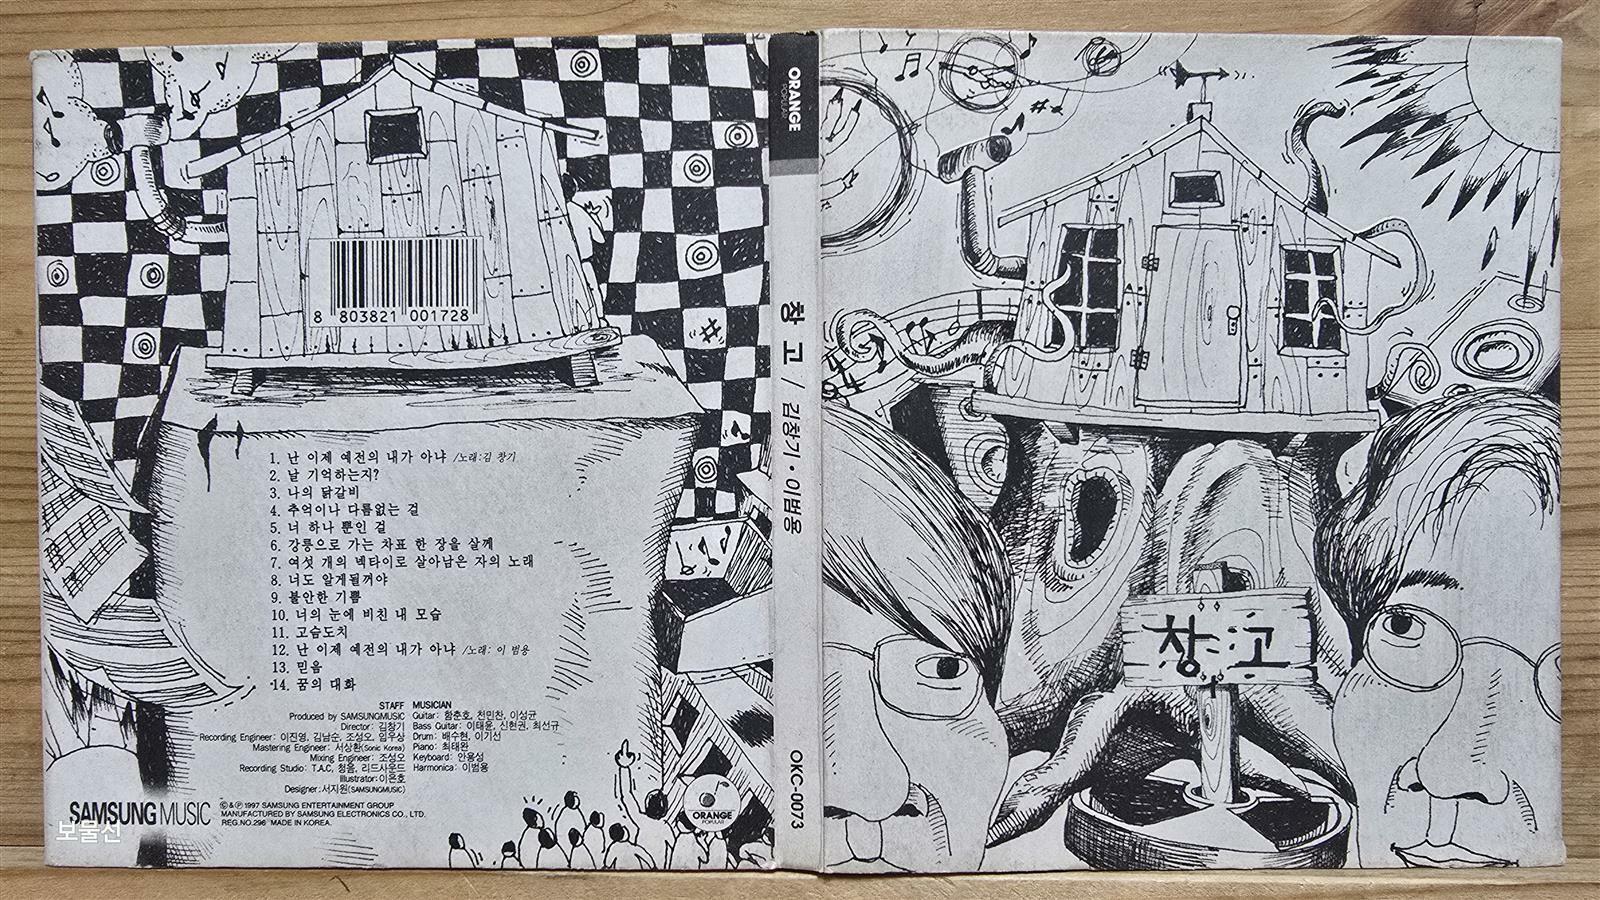 1. 난 이제 예전의 내가 아냐 /노래:김 창기
2. 날 기억하는지?
3. 나의 닭갈비
4. 추억이나 다름없는 걸
5. 너 하나 뿐인 걸
6. 강릉으로 가는 차표 한 장을 살께
7. 여섯 개의 넥타이로 살아남은 자의 노래
8. 너도 알게될꺼야
9. 불안한 기쁨
10. 너의 눈에 비친 내 모습
11. 고슴도치
12. 난 이제 예전의 내가 아냐 /노래: 이 범용
13. 믿음
14. 꿈의 대화
8 803821 001728
STAFF
Produced by SAMSUNGMUSIC
Director: 김창기
Recording Engineer: 이진영, 김남순, 조성오, 임우상
Mastering Engineer: 서상환(Sonic Korea)
Mixing Engineer: 조성오
Recording Studio: T.A.C, 청음, 리드사운드
Illustrator: 이은호
Designer: 서지원(SAMSUNGMUSIC)
MUSICIAN
Guitar: 함춘호, 천민찬, 이성균
Bass Guitar: 이태윤, 신현권, 최선규
Drum: 배수현, 이기선
Piano: 최태완
Keyboard: 안용성
Harmonica: 이범용
SAMSUNG MUSIC
©&℗ 1997 SAMSUNG ENTERTAINMENT GROUP
MANUFACTURED BY SAMSUNG ELECTRONICS CO., LTD.
REG.NO.296 MADE IN KOREA.
보물선
ORANGE
POPULAR
ORANGE
POPULAR
창고 / 김창기 • 이범용
OKC-0073
창고